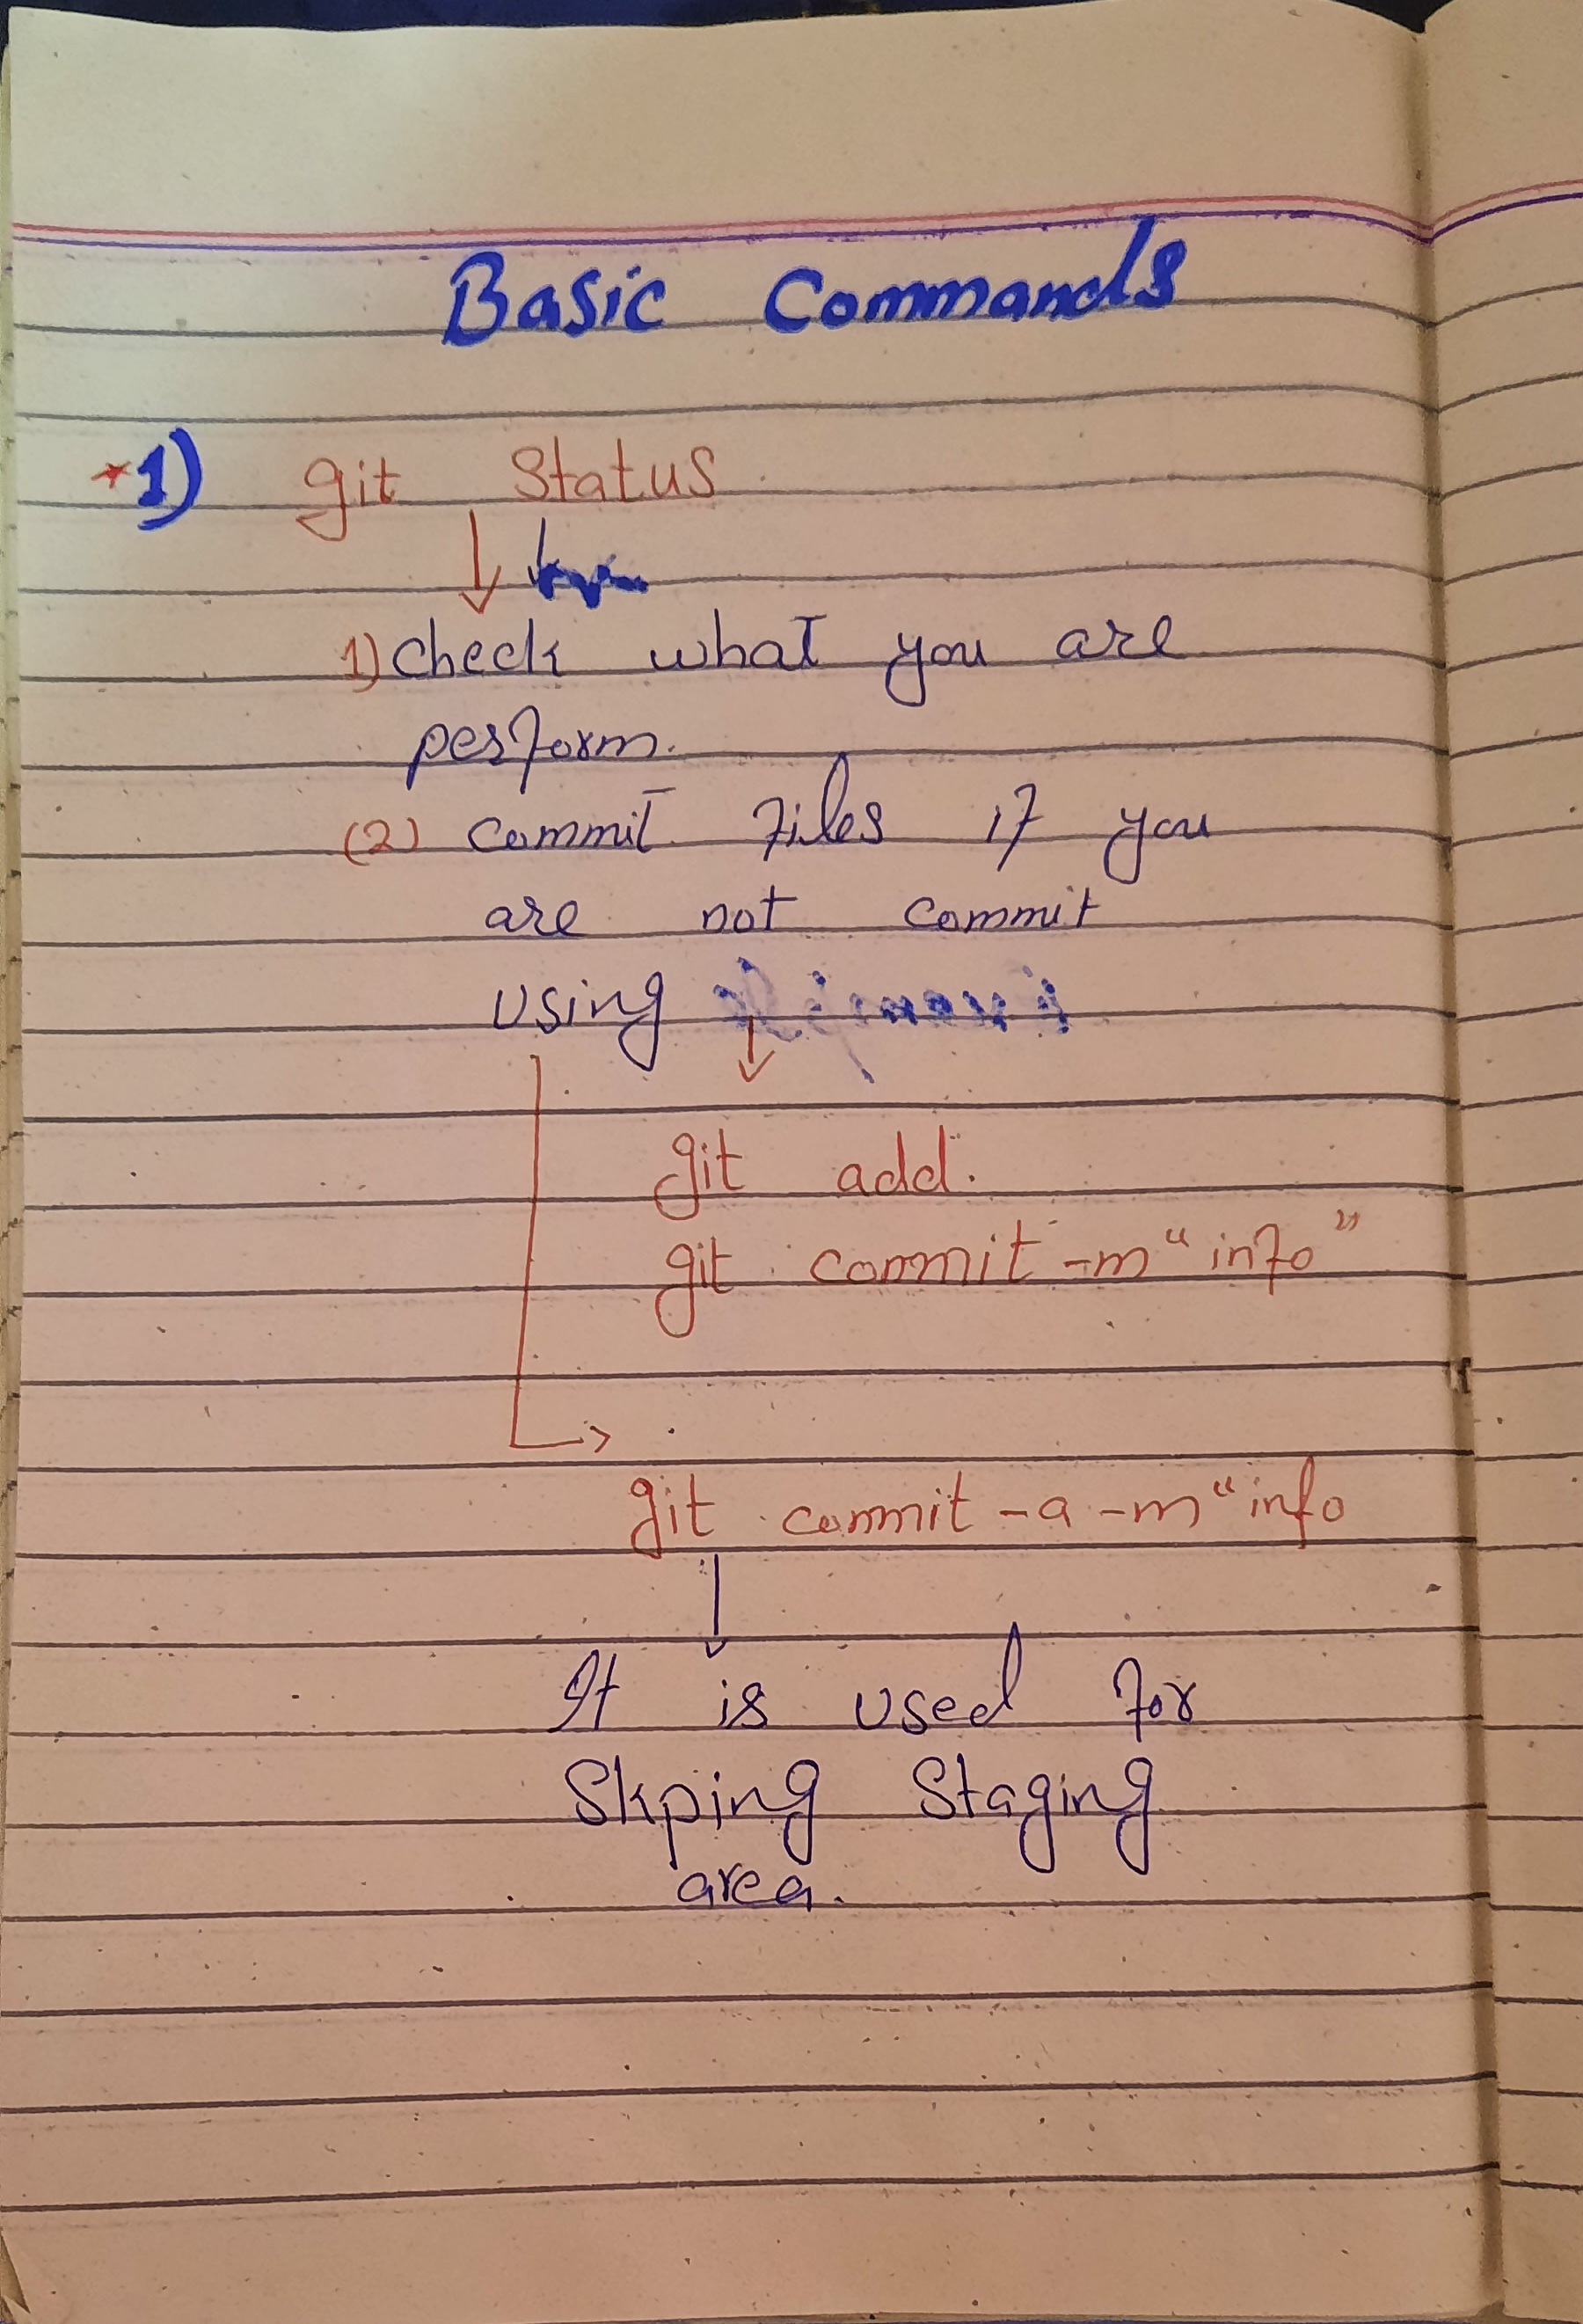 Basic Commands
*1) git Status
1) check what you are
perform.
(2) commit files if you
are not commit
using
git add.
git commit -m "info"
git commit -a -m "info
It is used for
Skping Staging
area.